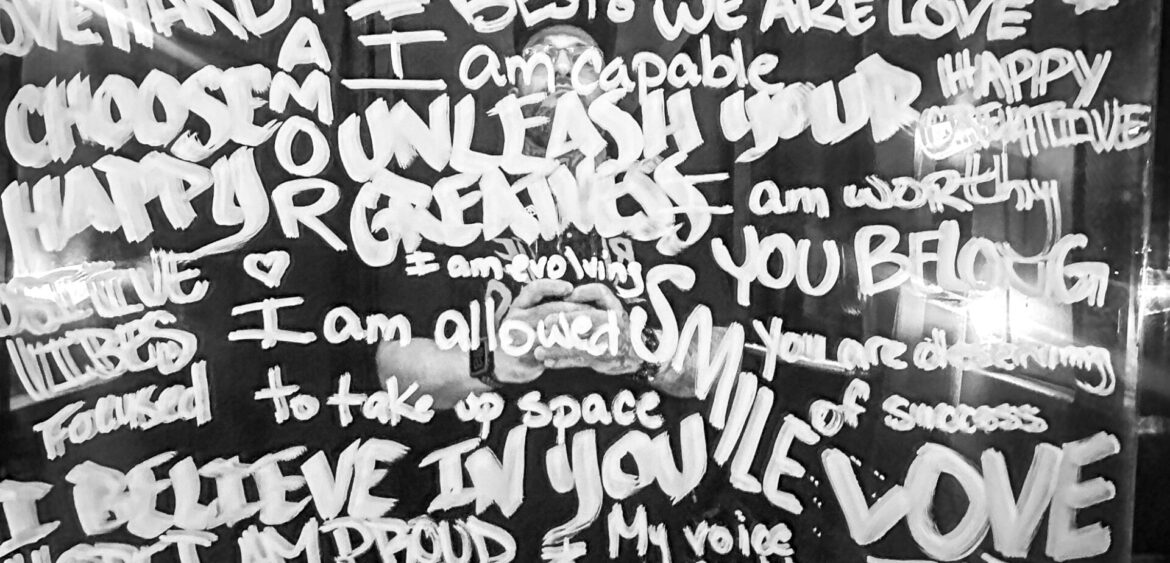 LOVE HARD
I
BEST
WE ARE LOVE
AMOR
I am capable
HAPPY
CHOOSE
HAPPY
UNLEASH YOUR
GREATNESS
CREATIVE
I am worthy
I am evolving
YOU BELONG
POSITIVE
VIBES
Focused
I am allowed
to take up space
SMILE
You are deserving
of success
I BELIEVE IN YOU
LOVE
I AM PROUD
My voice